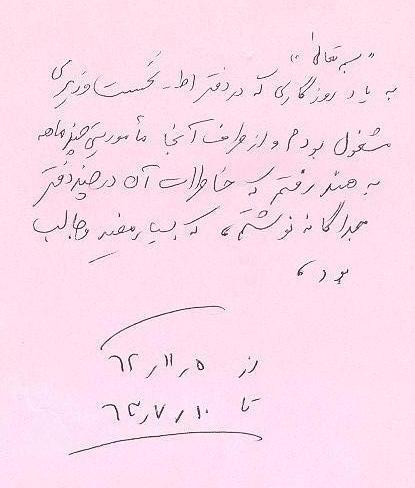 "بسمه تعالی"
به یاد روزگاری که در دفتر اط- نخست وزیری
مشغول بودم و از طرف آنجا مأموریتی چند ماهه
به هند رفتم که خاطرات آن در چند دفتر
جداگانه نوشتم، که بسیار مفید و جالب
بود،
از ۶۲٫۱۱٫۵
تا ۶۳٫۷٫۱۰